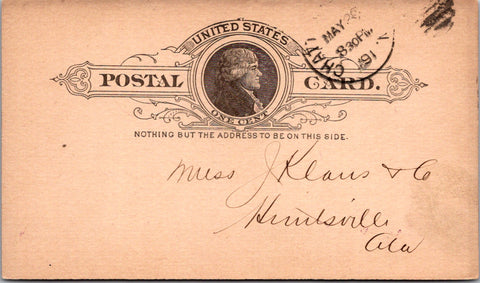 UNITED STATES
POSTAL CARD.
ONE CENT
CHAT
MAY
830PM
91
NOTHING BUT THE ADDRESS TO BE ON THIS SIDE.
Mess J Klaus & Co
Huntsville
Ala